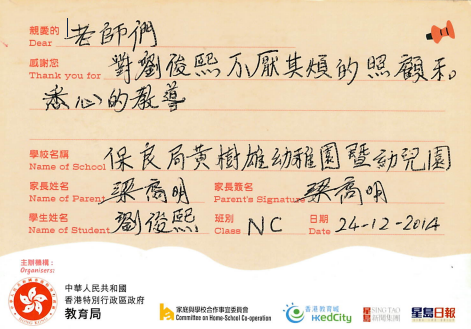 親愛的 老師們
Dear
感謝您 對劉俊熙不厭其煩的照顧和
Thank you for
悉心的教導
學校名稱 保良局黃樹雄幼稚園暨幼兒園
Name of School
家長姓名 梁喬明 家長簽名 梁喬明
Name of Parent Parent's Signature
學生姓名 劉俊熙 班別 NC 日期 24-12-2014
Name of Student Class Date
主辦機構:
Organisers:
中華人民共和國
香港特別行政區政府
教育局
家庭與學校合作事宜委員會
Committee on Home-School Co-operation
香港教育城
HKedCity
SING TAO
星島新聞集團
星島日報